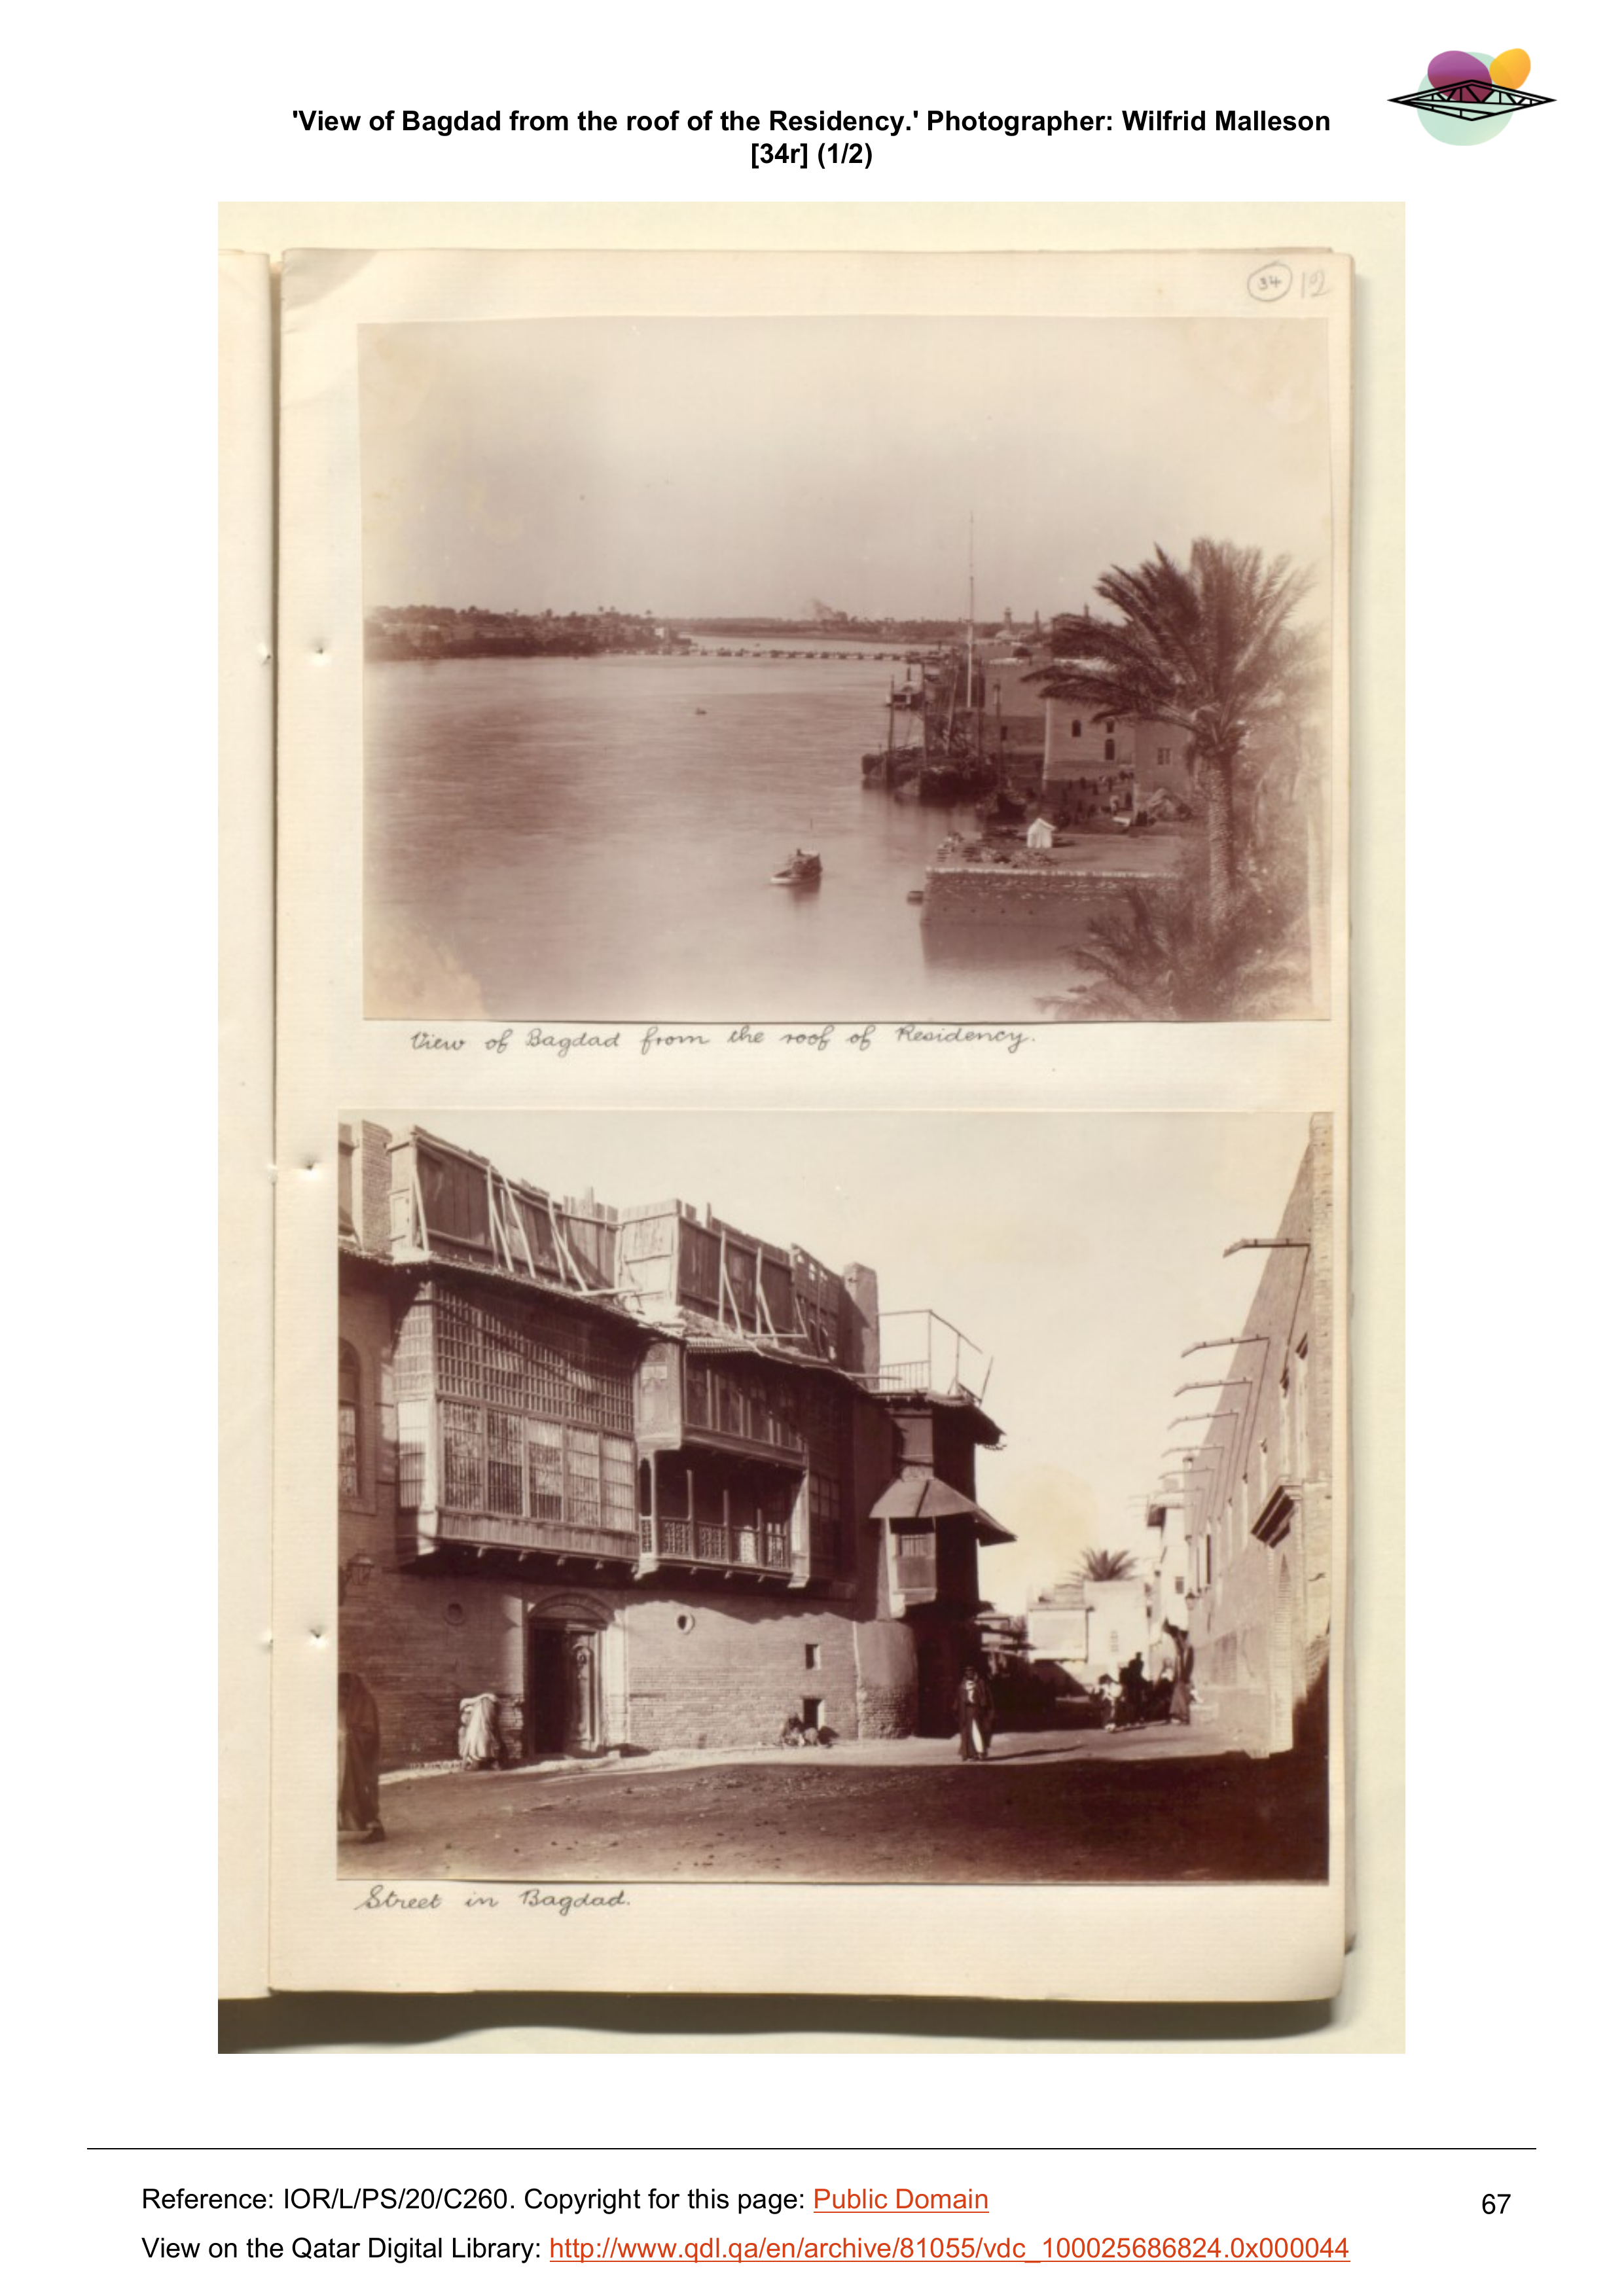 'View of Bagdad from the roof of the Residency.' Photographer: Wilfrid Malleson
[34r] (1/2)
34 12
View of Bagdad from the roof of Residency.
Street in Bagdad.
Reference: IOR/L/PS/20/C260. Copyright for this page: Public Domain
67
View on the Qatar Digital Library: http://www.qdl.qa/en/archive/81055/vdc_100025686824.0x000044